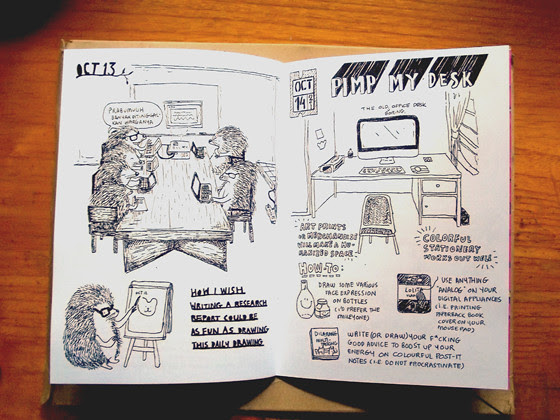 OCT 13
HOW I WISH
WRITING A RESEARCH
REPORT COULD BE
AS FUN AS DRAWING
THIS DAILY DRAWING
OCT
14
PIMP MY DESK
THE OLD OFFICE DESK
ART PRINTS
OR MERCHANDISE
WILL MAKE A HU-
MANIZED SPACE
COLORFUL
STATIONERY
WORKS OUT
HOW-TO:
DRAW SOME VARIOUS
FACE EXPRESSION
ON BOTTLES
(I'D PREFER THE
SMILEY ONE)
LOLITA
USE ANYTHING
"ANALOG" ON YOUR
DIGITAL APPLIANCES
(I.E. PRINTING
PAPERBACK BOOK
COVER ON YOUR
MOUSE PAD)
WRITE (OR DRAW) YOUR F*CKING
GOOD ADVICE TO BOOST UP YOUR
ENERGY ON COLOURFUL POST-IT
NOTES (I.E DO NOT PROCRASTINATE)